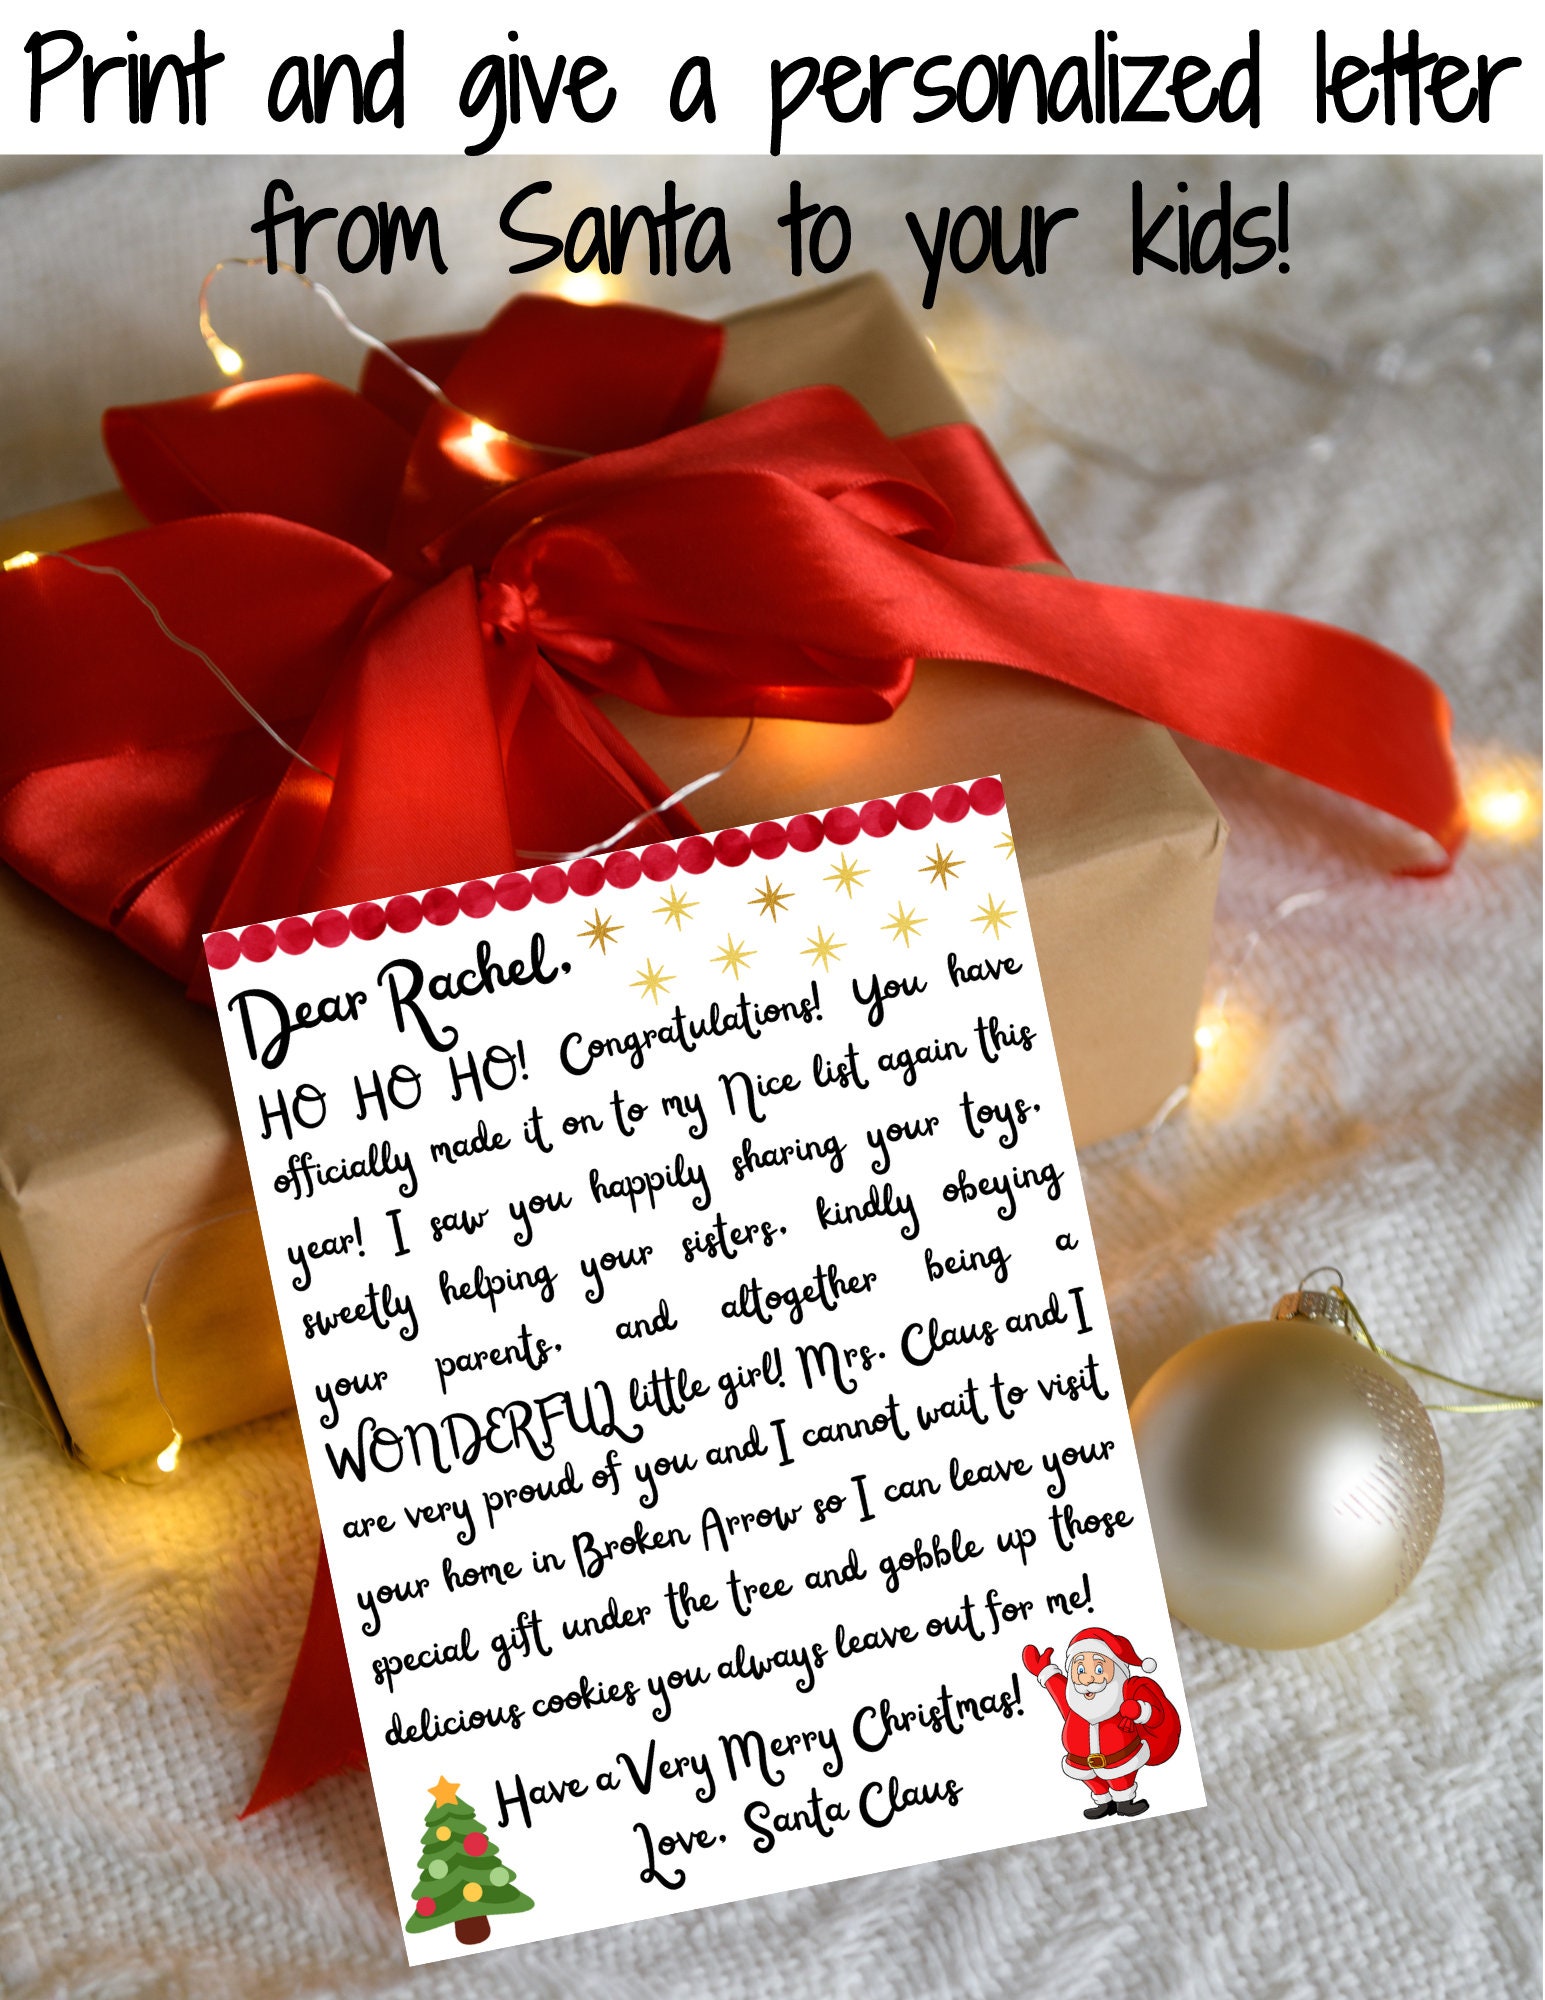 Print and give a personalized letter
from Santa to your kids!
Dear Rachel,
HO HO HO! Congratulations! You have
officially made it on to my Nice list again this
year! I saw you happily sharing your toys,
sweetly helping your sisters, kindly obeying
your parents, and altogether being a
WONDERFUL little girl! Mrs. Claus and I
are very proud of you and I cannot wait to visit
your home in Broken Arrow so I can leave your
special gift under the tree and gobble up those
delicious cookies you always leave out for me!
Have a Very Merry Christmas!
Love, Santa Claus